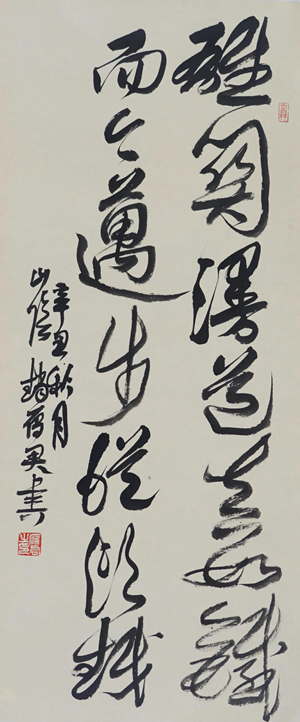 雄关漫道真如鐵
而今邁步從頭越
辛丑秋月
書